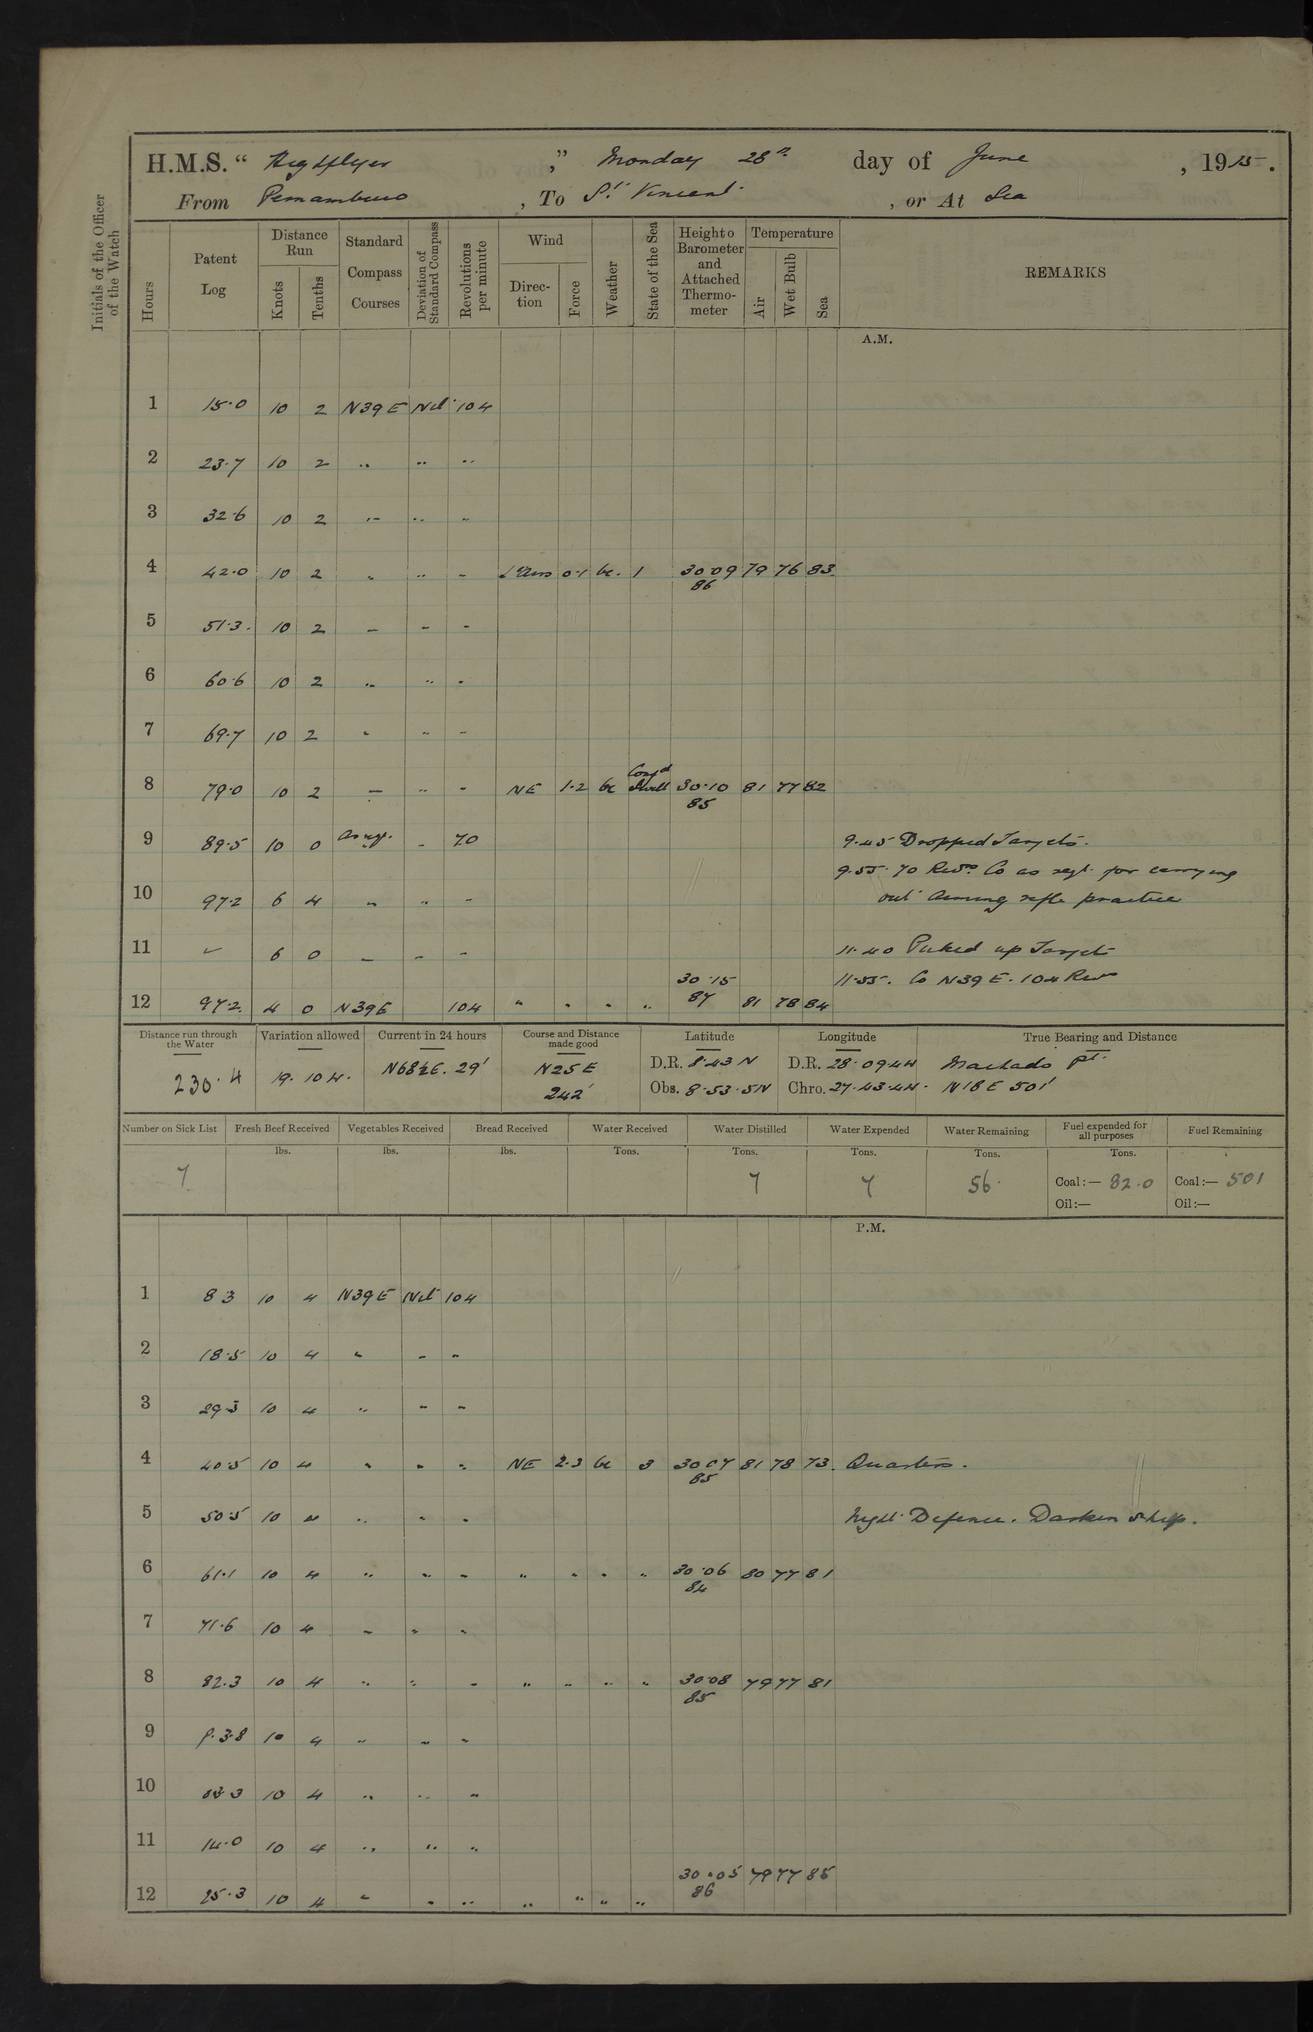 H.M.S. “ Highflyer ,” Monday 28th day of June , 1915.
From Pernambuco , To St. Vincent , or At Sea
Initials of the Officer of the Watch
Hours
Patent Log
Distance Run
Knots
Tenths
Standard Compass Courses
Deviation of Standard Compass
Revolutions per minute
Wind
Direction
Force
Weather
State of the Sea
Height o Barometer and Attached Thermometer
Temperature
Air
Wet Bulb
Sea
REMARKS
A.M.
1 15.0 10 2 N39E Nil 104
2 23.7 10 2 " " "
3 32.6 10 2 " " "
4 42.0 10 2 " " " 0.1 bc. 1 30.09 79 76 83
86
5 51.3 10 2 " " "
6 60.6 10 2 " " "
7 69.7 10 2 " " "
8 79.0 10 2 " " " NE 1.2 bc Swell 30.10 81 77 82
85
9 89.5 10 0 As reqt. " 70 9.45 Dropped Targets.
9.55. 70 Revs. Co as reqt. for carrying
10 97.2 6 4 " " " out aiming rifle practice
11 ✓ 6 0 " " " 11.40 Picked up Targets
11.55. Co N39E. 104 Revs
12 97.2 4 0 N39E 104 " " " " 30.15 81 78 84
87
Distance run through the Water
230.4
Variation allowed
19.10 W.
Current in 24 hours
N68½E. 29'
Course and Distance made good
N25E
242'
Latitude
D.R. 8.43 N
Obs. 8.53.5N
Longitude
D.R. 28.09.4W
Chro. 27.43.4W.
True Bearing and Distance
Machado Pt.
N18E 501'
Number on Sick List
7
Fresh Beef Received
lbs.
Vegetables Received
lbs.
Bread Received
lbs.
Water Received
Tons.
Water Distilled
Tons.
7
Water Expended
Tons.
7
Water Remaining
Tons.
56
Fuel expended for all purposes
Tons.
Coal:— 82.0
Oil:—
Fuel Remaining
Coal:— 501
Oil:—
P.M.
1 8.3 10 4 N39E Nil 104
2 18.5 10 4 " " "
3 29.3 10 4 " " "
4 40.5 10 4 " " " NE 2.3 bc 3 30.07 81 78 73. Quarters.
85
5 50.5 10 4 " " " Night Defence. Darken Ship.
6 61.1 10 4 " " " " " " " 30.06 80 77 81
84
7 71.6 10 4 " " "
8 82.3 10 4 " " " " " " " 30.08 79 77 81
85
9 10 4 " " "
10 10 4 " " "
11 14.0 10 4 " " "
12 25.3 10 4 " " " " " " " 30.05 79 77 85
86